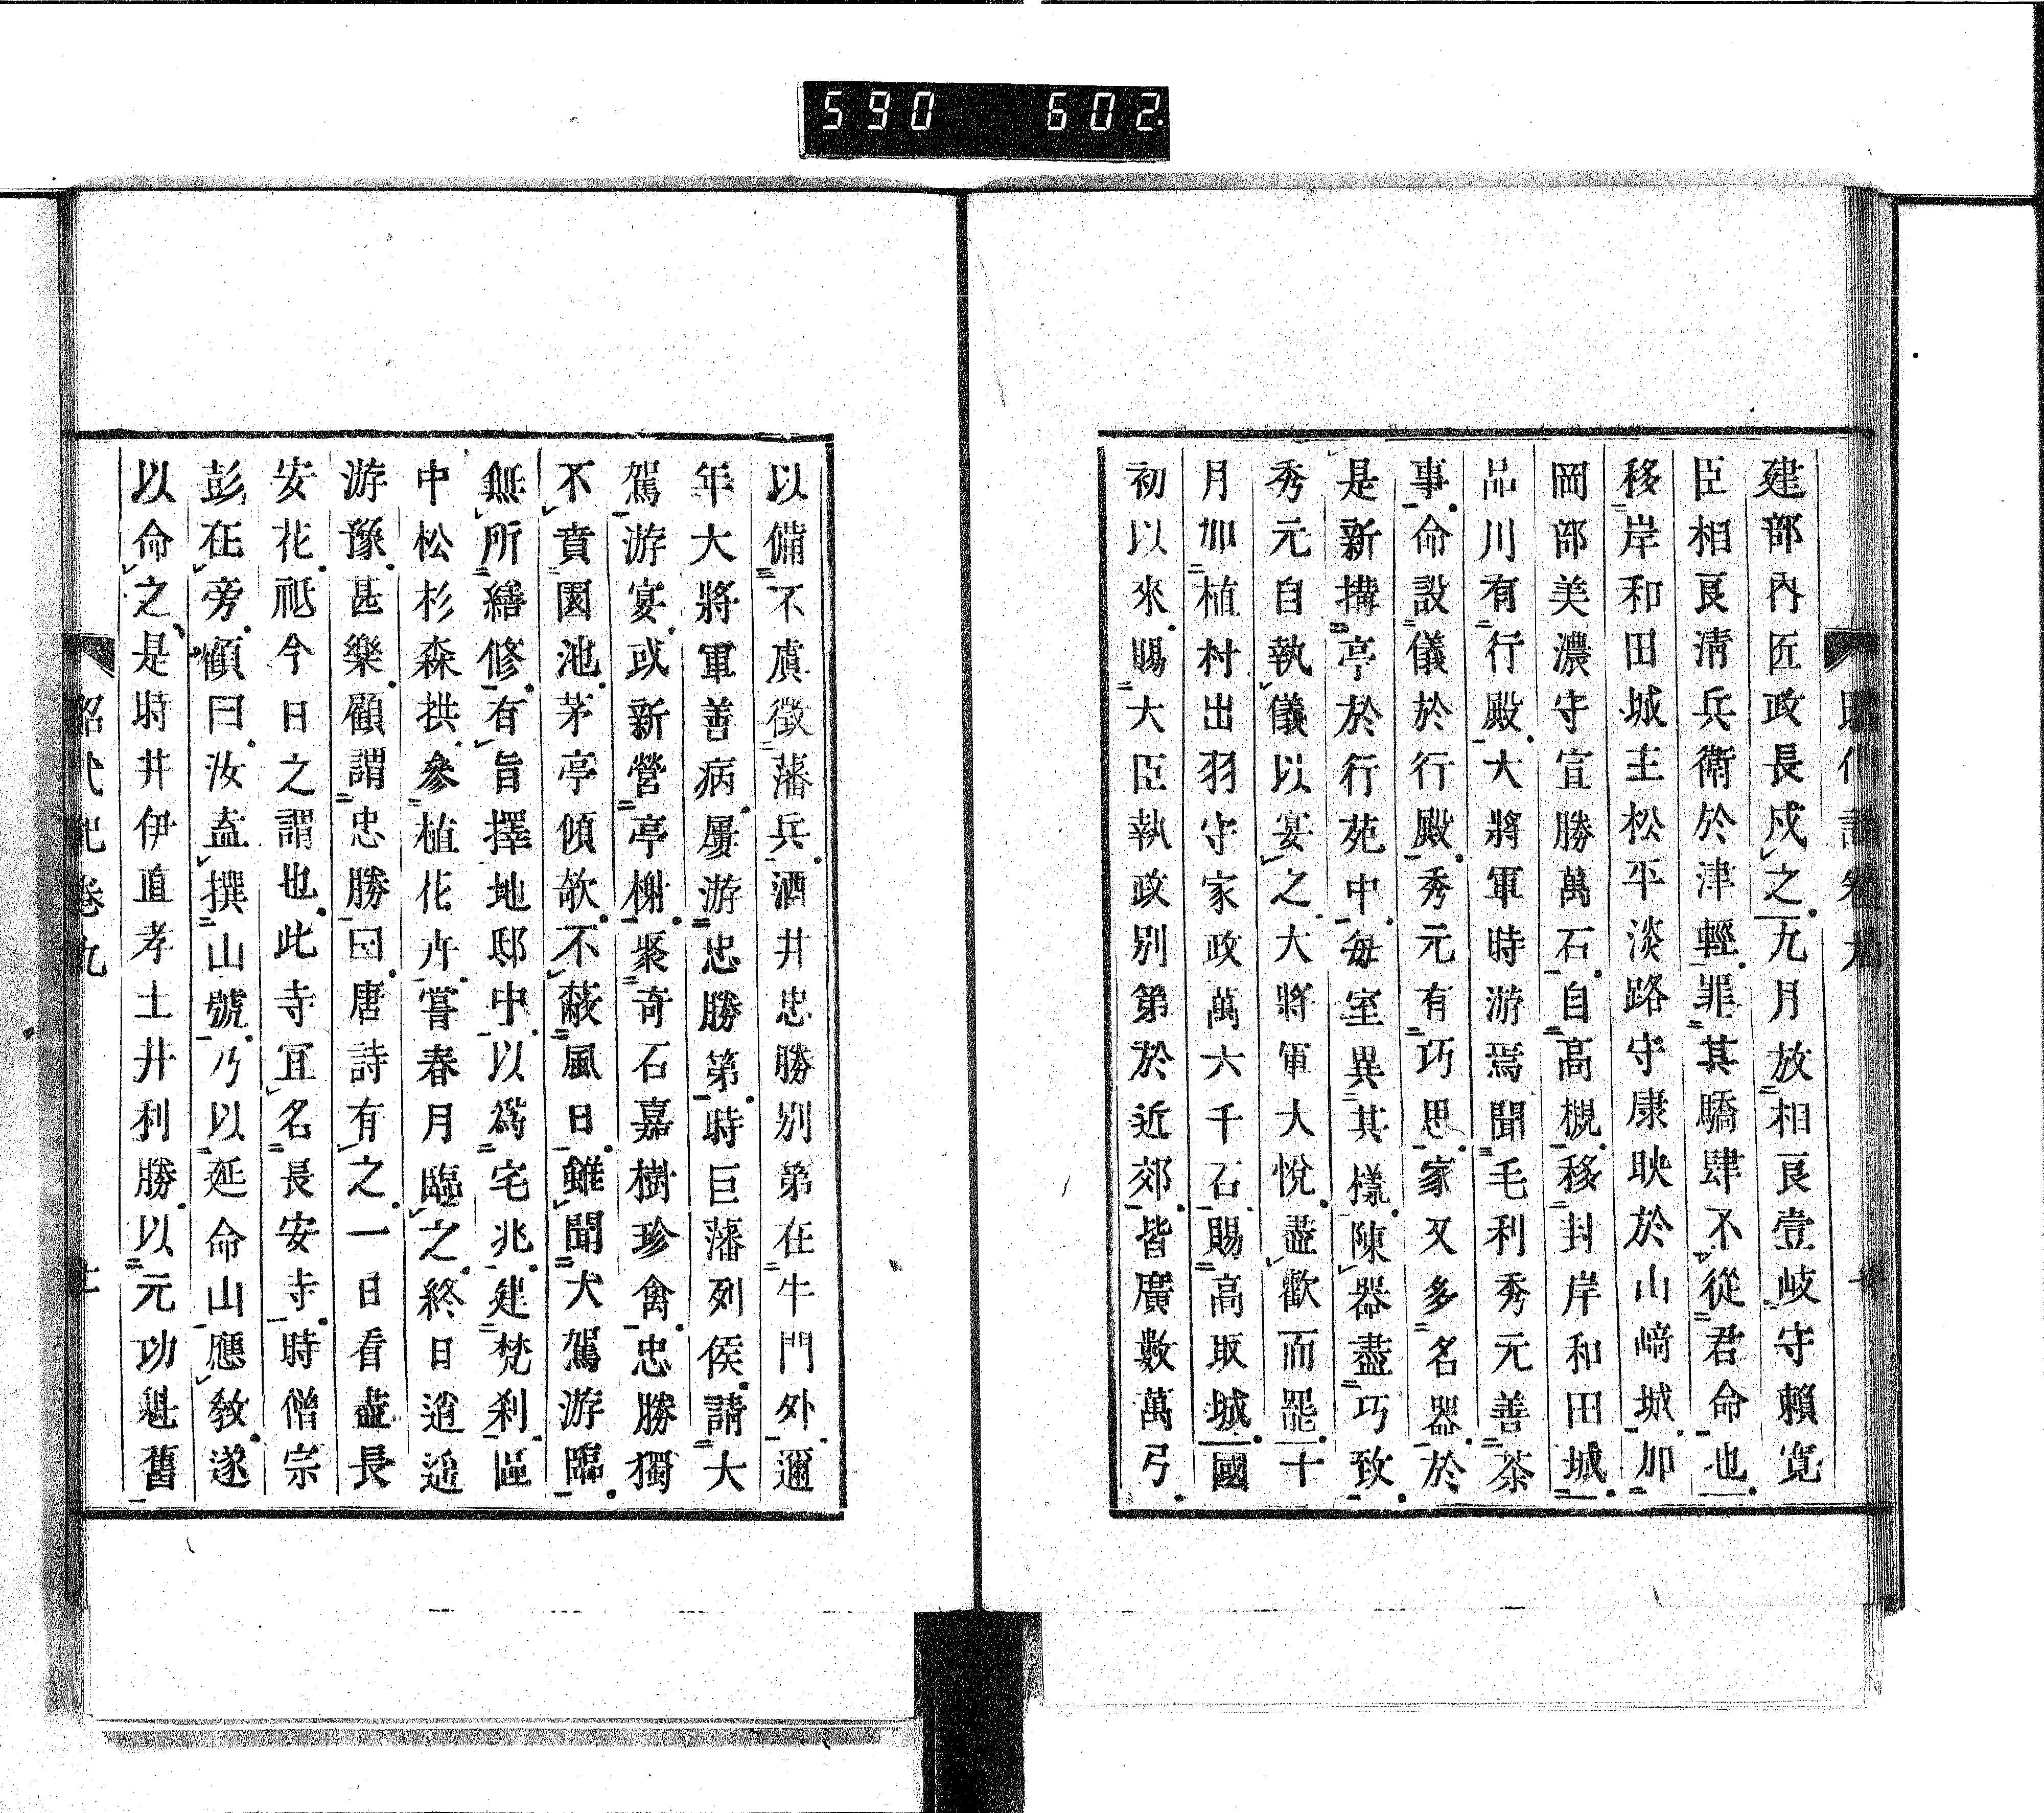 590 602
建部內匠政長戍之九月放相良壹岐守賴寛
臣相良淸兵衛於津輕罪其驕肆不從君命也
移岸和田城主松平淡路守康映於山﨑城加
岡部美濃守宣勝萬石自高槻移封岸和田城
品川有行殿大將軍時游焉聞毛利秀元善茶
事命設儀於行殿秀元有巧思家又多名器於
是新搆亭於行苑中每室異其樣陳器盡巧致
秀元自執儀以宴之大將軍大悅盡歡而罷十
月加植村出羽守家政萬六千石賜高取城國
初以來賜大臣執政別第於近郊皆廣數萬弓
以備不虞徵藩兵酒井忠勝別第在牛門外邇
年大將軍善病屢游忠勝第時巨藩列侯請大
駕游宴或新營亭榭聚奇石嘉樹珍禽忠勝獨
不賁園池茅亭傾欹不蔽風日雖聞大駕游臨
無所繕修有旨擇地邸中以爲宅兆建梵刹區
中松杉森拱參植花卉嘗春月臨之終日逍遙
游豫甚樂顧謂忠勝曰唐詩有之一日看盡長
安花祗今日之謂也此寺宜名長安寺時僧宗
彭在旁顧曰汝盍撰山號乃以延命山應敎遂
以命之是時井伊直孝土井利勝以元功魁舊
昭代記卷九